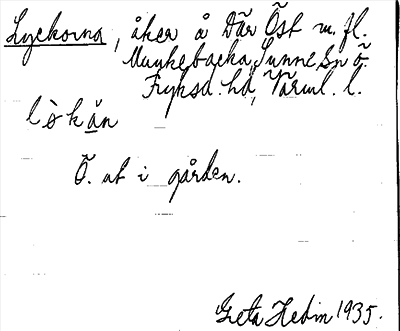 Lyckorna, åker å Där Öst m. fl.
Munkebacka, Sunne Sn Ö.
Fryksd. hd, Värml. l.
lò̀kån
Ö. ut i gården.
Greta Hedin 1935.